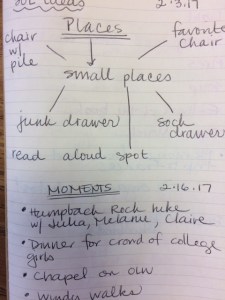 ideas 2.3.17
Places
chair w/ pile
favorite chair
small places
junk drawer
sock drawer
read aloud spot
MOMENTS 2.16.17
• Humpback Rock hike
w/ Julia, Melanie, Claire
• Dinner for crowd of college
girls
• Chapel on
• Windy walks